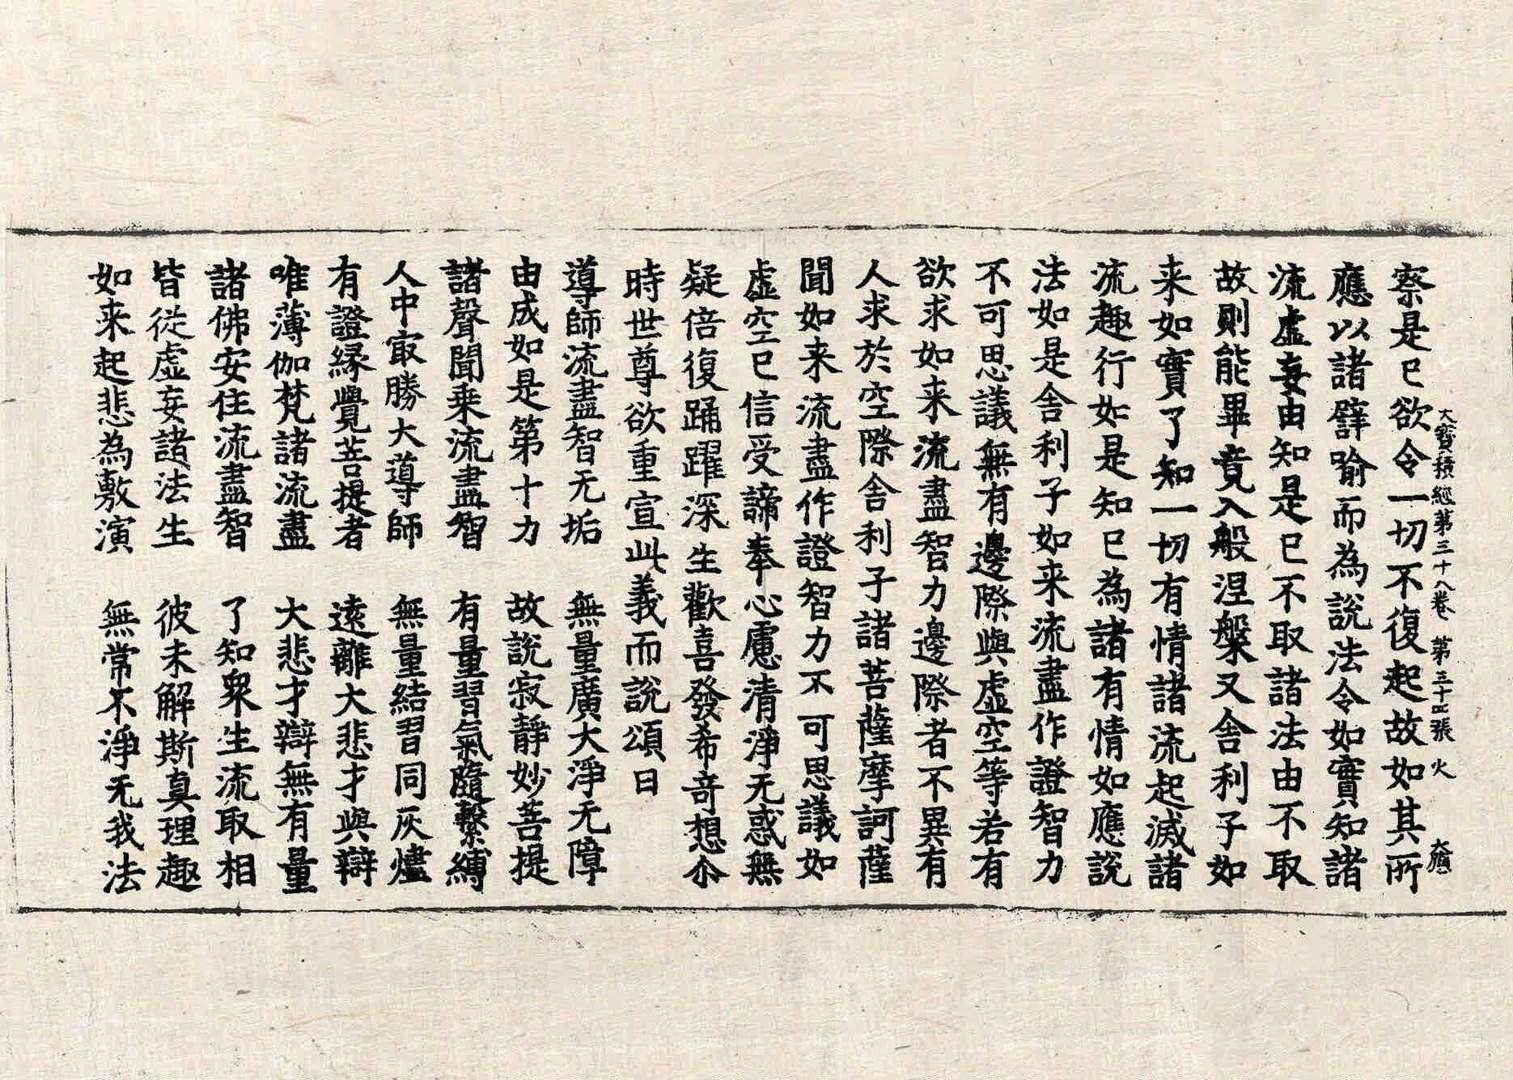 察是已欲令一切不復起故如其所
大寶積經第三十八卷　第三十四張　火
應以諸譬喻而為說法令如實知諸
流虛妄由知是已不取諸法由不取
故則能畢竟入般涅槃又舍利子如
来如實了知一切有情諸流起滅諸
流趣行如是知已為諸有情如應說
法如是舍利子如来流盡作證智力
不可思議無有邊際與虛空等若有
欲求如来流盡智力邊際者不異有
人求於空際舍利子諸菩薩摩訶薩
聞如来流盡作證智力不可思議如
虛空已信受諦奉心慮清淨无惑無
疑倍復踊躍深生歡喜發希奇想尒
時世尊欲重宣此義而說頌曰
導師流盡智无垢　無量廣大淨无障
由成如是第十力　故說寂靜妙菩提
諸聲聞乗流盡智　有量習氣隨繫縛
人中㝡勝大導師　無量結習同灰燼
有證緣覺菩提者　遠離大悲才與辯
唯薄伽梵諸流盡　大悲才辯無有量
諸佛安住流盡智　了知衆生流取相
皆從虛妄諸法生　彼未解斯真理趣
如来起悲為敷演　無常不淨无我法